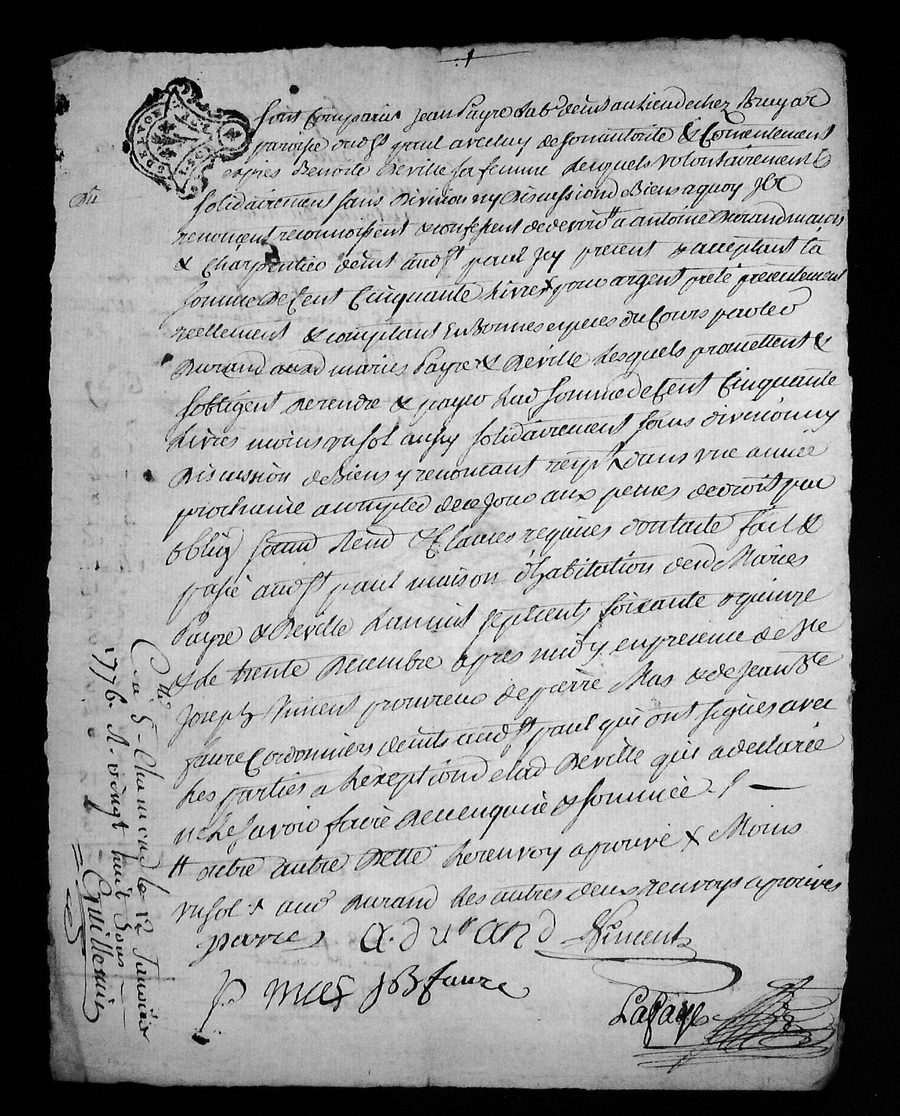 1
GEN. DE LYON
Sont Comparus Jean Payre lab.r dem.t au Lieu de chez Bruyar
paroisse dud.t st paul avec luy de son autorité & Consentement
Benoite Deville sa femme Lesquels volontairement &
Solidairement sans division ny discussion de Biens a quoy Ils
renoncent reconnoissent & confessent de devoir # a antoine Durand maçon
& Charpentier dem.t aud.t st paul Icy present & acceptant la
Somme de Cent Cinquante Livres x pour argent preté presentement
reellement & comptant en Bonnes especes du Cours par led
Durand auxd mariés Payre & Deville Lesquels promettent &
s'obligent de rendre & payer Lad somme de Cent Cinquante
Livres moins un sol aussy solidairement sans division ny
discussion de Biens y renoncant x dans une année
prochaine a compter de ce Jour aux peines de droit par
oblig Soumd Rend & Clauses requises dont acte fait &
passé aud st paul maison d'habitation desd Mariés
Payre & Deville L'an mil sept cents soixante & quinze
& le trente Decembre apres midy en presence de Me
Joseph Viment procureur de pierre Mas & de Jean Bte
faure Cordonniers dem.ts aud.t st paul qui ont signés avec
Les parties a L'exception de lad Deville qui a declarée
ne le Savoir faire de ce enquise & Sommée /. —
# outre autre Dette Le renvoy aprouvé x Moins
un sol & aud Durand Les autres deux renvoys aprouvés
payre a. durand Viment
p. mas JB faure
Lafaye
C.lé à St Chamond le 12 Janvier
1776 R. vingt huit Sous
Guillemin